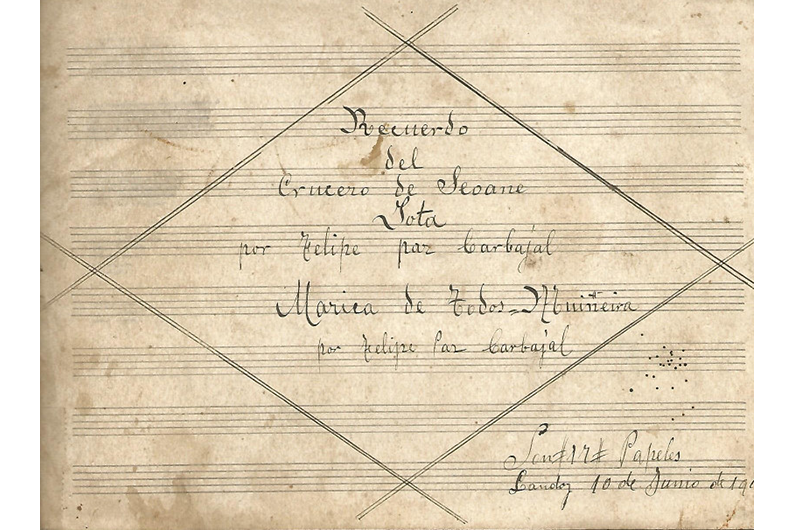 Recuerdo
del
Crucero de Seoane
Jota
por Felipe paz Carbajal
Marica de Todos=Muiñeira
por Felipe Paz Carbajal
Son #17# Papeles
10 de Junio de 19